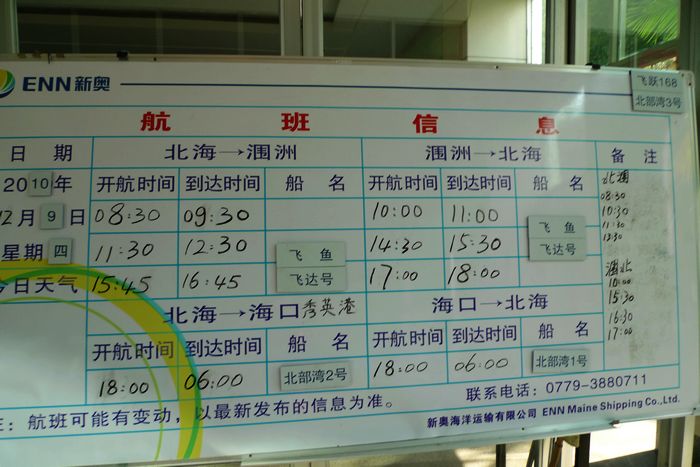 飞跃168
北部湾3号
ENN新奥
航班信息
日期 北海→涠洲 涠洲→北海 备注
2010年 开航时间 到达时间 船名 开航时间 到达时间 船名
12月9日 08:30 09:30 10:00 11:00
星期四 11:30 12:30 飞鱼 14:30 15:30 飞鱼
飞达号
今日天气 15:45 16:45 飞达号 17:00 18:00
北涠
08:30
10:30
11:30
12:30
涠北
10:00
15:30
16:30
17:00
北海→海口秀英港 海口→北海
开航时间 到达时间 船名 开航时间 到达时间 船名
18:00 06:00 北部湾2号 18:00 06:00 北部湾1号
联系电话：0779-3880711
注：航班可能有变动，以最新发布的信息为准。
新奥海洋运输有限公司 ENN Maine Shipping Co.,Ltd.